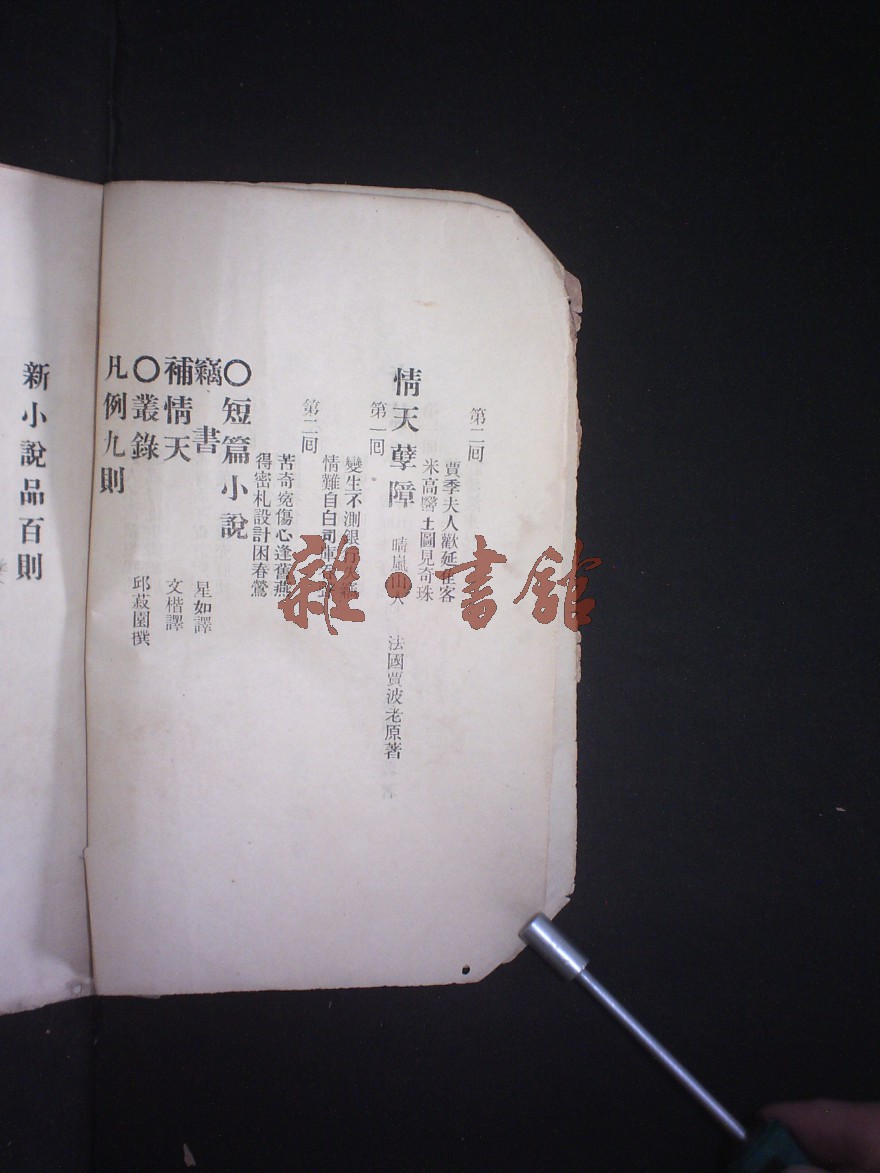 第二回
賈季夫人歡延佳客
米高醫士圖見奇珠
情天孽障 晴嵐山人 法國賈波老原著
第一回
變生不測銀行失竊
情難自白司庫
第二回
苦奇寃傷心逢舊燕
得密札設計困春鶯
〇短篇小說
竊書 星如譯
補情天 文楷譯
〇叢錄
凡例九則 邱菽園撰
新小說品百則
雜·書館